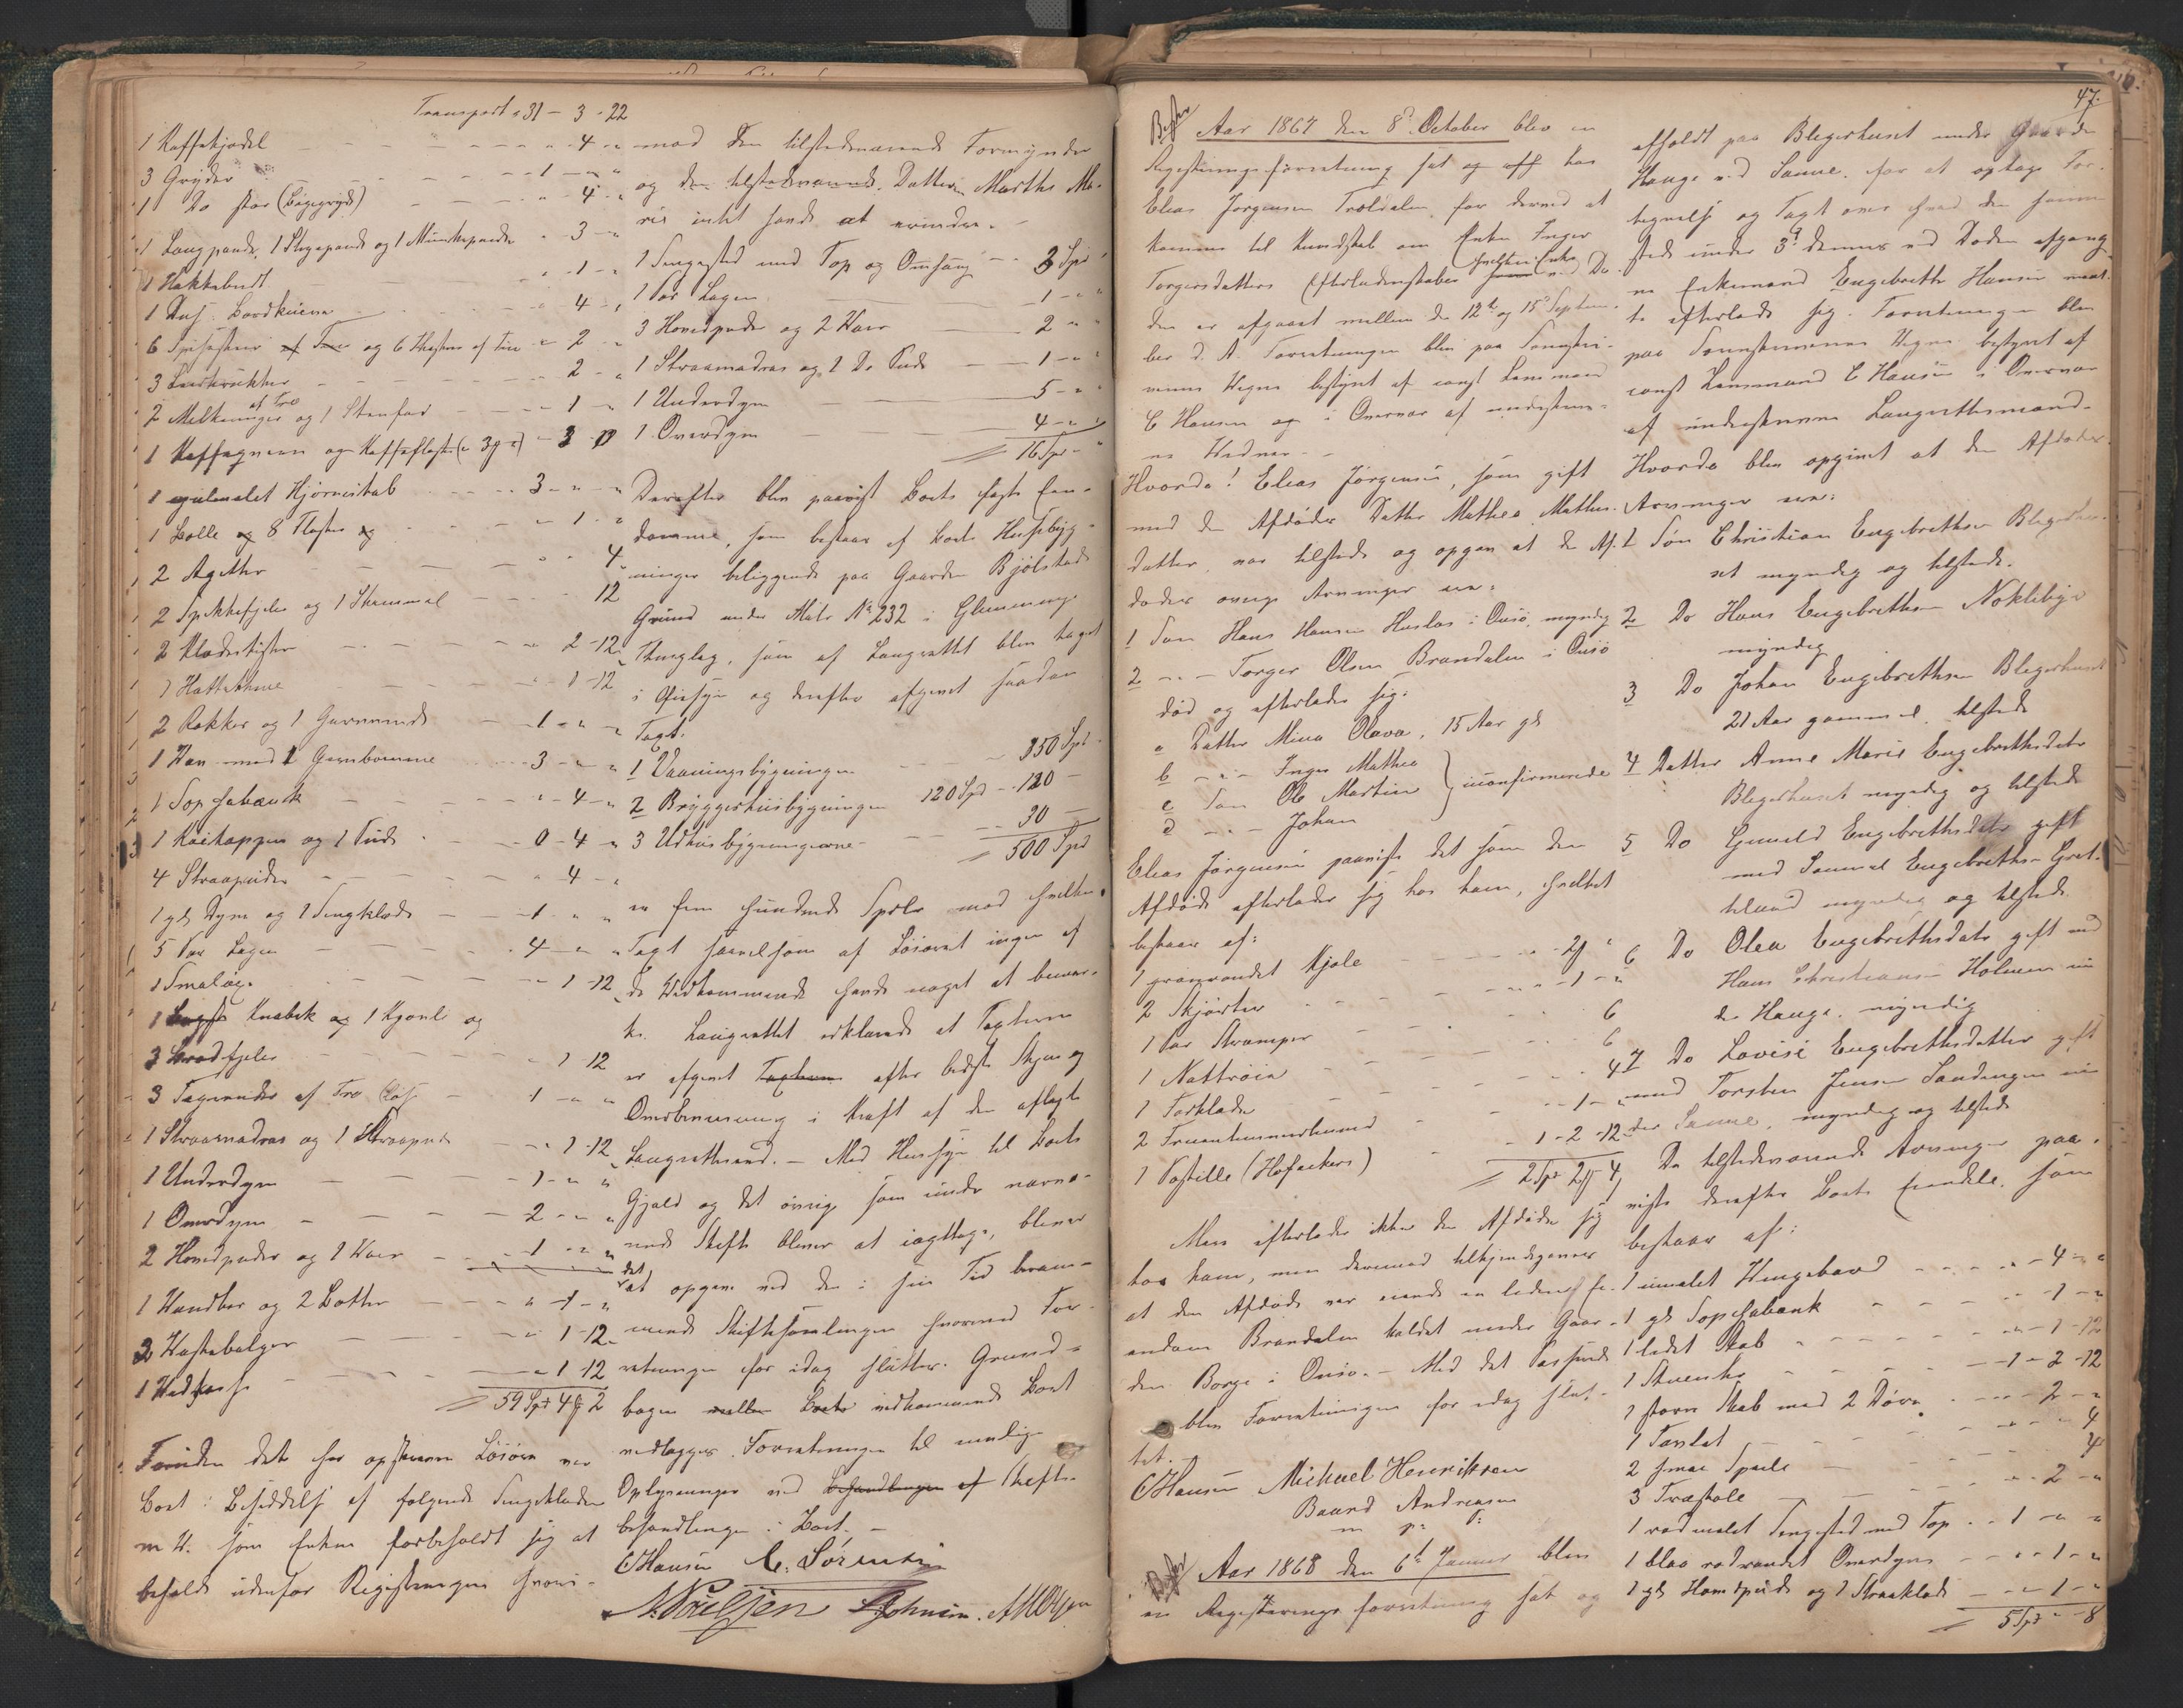 Transport " 31 - 3 - 22
1 Kaffekjedel - - - " - 4 - "
3 Gryder - - - " - 1 - " - "
1 Do stor (Bagegryde) - - " - 4 - "
1 Langpande, 1 Stegepande og 1 Munkepande " - 3 - "
1 Hakkebret - - " - 1 - "
1 Dus. Bordknive - - " - 4 - "
6 Spiseskeer af Tin og 6 Theskeer af Tin " - 2 - "
3 Leerkrukker - - - 2 - "
2 Melkeringer af Træ og 1 Stenfad - - 1 - "
1 Kaffeqvern og Kaffeflaske - 3
1 gulmalet Hjørneskab - - 3 - " - "
1 Bolle og 8 Flasker og - - " - 1 - "
2 Agetter - - " " 4
2 Spekkefjeler og 1 Skammel - - - 12
2 Klædekister - - - " 2 - 12
1 Hatteskrue - - " - 1 - 12
2 Rokker og 1 Garnvinde - - 1 - " - "
1 Væv med 2 Garnbomme - - 3 - " - "
1 Sophabænk - - " - 4 - "
1 Kaikappen og 1 Pude - - 0 - 4 - "
4 Straapuder - - " - 4 - "
1 gl Dyne og 1 Sengklæde - - 1 - " - "
5 Par Lagen - - 4 - " - "
1 Smaløg - - - 1 - 12
1 Knabek og 1 Kjævle og
3 Brødfjeler - - " - 1 - 12
3 Tagrender af Træ - 1 - " "
1 Straamadras og 1 Straapude - " 1 - 12
1 Underdyne - - - 1 - " "
1 Overdyne - - - 2 - " "
2 Hovedpuder og 2 Vaer - - 1 - " "
1 Vandbør og 2 Bøtter - - " - 1 - "
2 Vaskebaljer - - " 1 - 12
1 Vedkasse - - " 1 - 12
59 Spd 4 ß 2
Foruden det her opskrevne Løsøre var
Boet i Besiddelse af følgende Sengeklæder
m. V. som Enken forbeholdt sig at
beholde udenfor Registreringen hvori-
mod den tilstedeværende Formynder
og den tilstedeværende Datter Marthe Ma-
rie intet havde at erindre.
1 Sengested med Top og Omhang - 3 Spd
1 Par Lagen - 1 - "
3 Hovedpuder og 2 Vaer - 2 - "
1 Straamadras og 1 Do Pude - 1 - "
1 Underdyne - 5 - "
1 Overdyne - 4 - "
16 Spd "
Derefter blev paavist Boets faste Eien-
domme, som bestaar af Boets Huusbyg-
ninger beliggende paa Gaarden Bjølstads
Grund under Matr No 232 i Glemminge
Thinglag, som af Laugrettet blev taget
i Øiesyn og derefter afgivet saadan
Taxt:
1 Vaaningsbygningen - 350 Spd
2 Bryggerhuusbygningen 120 Spd - 120 -
3 Udhuusbygningerne - - 30 -
500 Spd
er fem Hundrede Spdlr mod hvilken
Taxt saavelsom af Løsøret ingen af
de Vedkommende havde noget at bemær-
ke. Laugrettet erklærede at Taxterne
er afgivet Taxterne efter bedste Skjøn og
Overbeviisning i Kraft af den aflagte
Laugrettesed. - Med Hensyn til Boets
Gjæld og det øvrige som under nærvæ-
rende Skifte bliver at iagttage, bliver
det at opgive ved den i sin Tid beram-
mende Skiftesamlingen hvormed For-
retningen for idag slutter. Grund-
bogen mellem Boets vedkommende Boet
vedlægges Forretningen til nærlige
Oplysninger ved Behandlingen af Skifte-
behandlingen i Boet. -
CHansen C. Sørensen
N. Poulsen Johnsen. AMOlsen
47.
Aar 1867 den 8de October blev en
Registreringsforretning sat og aff hos
Elias Jørgensen Troldalen for derved at
komme til Kundskab om Enken Inger
Torgersdatters Efterladenskaber hvilken Enke ved Dø-
den er afgaaet mellem de 12te og 15de Septem-
ber d. A. Forretningen blev paa Sorenskri-
verens Vegne bestyret af const Lensmand
C Hansen og i Overvær af undertegne-
de Vidner. -
Hvorda! Elias Jørgensen, som gift
med den Afdødes Datter Mathea Mathis-
datter, var tilstede og opgav at den Af-
dødes øvrige Arvinger er:
1 Søn Hans Hansen Huslas i Onsø, myndig
2 - " - Torger Olsen Brandalen i Onsø
død og efterlader sig:
a Datter Mina Olava, 15 Aar gl
b - " - Inger Mathea
c Søn Ole Martin } uconfirmerede
d - " - Johan
Elias Jørgensen paaviste det som den
Afdøde efterlader sig hos ham, hvilket
bestaar af:
1 grønrandet Kjole - - " 2 ß "
2 Skjørter - - - " - 1 - "
1 Par Strømper - - - 6
1 Nattrøie - - - 6
1 Forklæde - - - 4
2 Fruentimmerhuer - - 1 - "
1 Postille (Hofackers) - - 1 - 2 - 12
2 Spd 2 ß 4
Mere efterlader ikke den Afdøde sig
hos ham, men derimod tilkjendegiver
at den Afdøde var eiende en liden Ei-
endom Brandalen kaldet under Gaar-
den Borge i Onsø. - Med det Passerede
blev Forretningen for idag slut-
tet. -
CHansen Michael Henriksen
Baard Andreasen
m p: P:
Aar 1868 den 6te Januar blev
en Registreringsforretning sat og
affholdt paa Blegerhuset under Gaarden
Hauge ved Sanne for at optage For-
tegnelse og Taxt over hvad den samme-
steds under 3de dennes ved Døden afgang-
ne Enkemand Engebreth Hansen maat-
te efterlade sig. Forretningen blev
paa Sorenskriverens Vegne bestyret af
const Lensmand C Hansen i Overvær
af undertegnede Laugrettesmænd.
Hvorda blev opgivet at den Afdødes
Arvinger er:
1 Søn Christian Engebrethsen Blegerhu-
set myndig og tilstede.
2 Do Hans Engebrethsen Nøklebye
myndig
3 Do Johan Engebrethsen Blegerhuset
21 Aar gammel, tilstede
4 Datter Anne Marie Engebrethsdatr
Blegerhuset myndig og tilstede
5 Do Gunild Engebrethsdatr gift
med Samuel Engebrethsen Græt-
teland myndig og tilstede
6 Do Olea Engebrethsdatr gift med
Hans Christiansen Holmen un-
der Hauge. myndig
7 Do Lovise Engebrethsdatter gift
med Torsten Jensen Sandengen un-
der Sanne, myndig og tilstede
De tilstedeværende Arvinger paa-
viste derefter Boets Eiendele, som
bestaar af:
1 umalet Hengebord - - " - 4 - "
1 gl Sophabænk - - " - 1 - "
1 lidet Skab - - " - 1 - 12
1 Stueuhr - - 1 - 2 - 12
1 større Skab med 2 Døre - - 2 - "
1 Tavlet - - " - " 4
2 smaa Speile - - 4
3 Træstole - - " 2 - "
1 rødmalet Sengested med Top - 1 - " "
1 blaa rødrandet Overdyne - - " - 1 - "
1 gl Hovedpude og 1 Straaklæde - - 1 - "
5 Spd " - 8